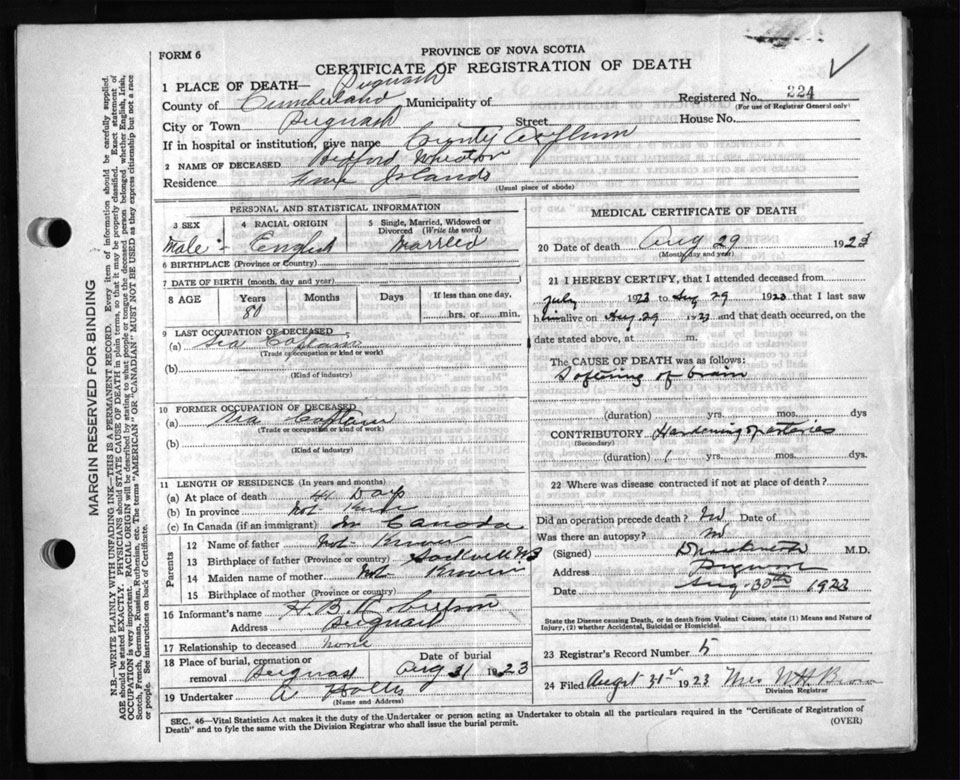 FORM 6
PROVINCE OF NOVA SCOTIA
CERTIFICATE OF REGISTRATION OF DEATH
1 PLACE OF DEATH— Pugwash
County of Cumberland Municipality of Registered No. 224
(For use of Registrar General only)
City or Town Pugwash Street House No.
If in hospital or institution, give name County Asylum
2 NAME OF DECEASED Bedford
Residence Five Islands
(Usual place of abode)
PERSONAL AND STATISTICAL INFORMATION
3 SEX 4 RACIAL ORIGIN 5 Single, Married, Widowed or Divorced (Write the word)
Male English Married
6 BIRTHPLACE (Province or Country)
7 DATE OF BIRTH (month, day and year)
8 AGE Years Months Days If less than one day,
80 hrs. or min.
9 LAST OCCUPATION OF DECEASED
(a) Sea Captain
(Trade or occupation or kind or work)
(b)
(Kind of industry)
10 FORMER OCCUPATION OF DECEASED
(a) Sea Captain
(Trade or occupation or kind or work)
(b)
(Kind of industry)
11 LENGTH OF RESIDENCE (In years and months)
(a) At place of death 41 Days
(b) In province Not
(c) In Canada (if an immigrant) In Canada
Parents
12 Name of father Not Known
13 Birthplace of father (Province or country) Sackville NB
14 Maiden name of mother Not Known
15 Birthplace of mother (Province or country)
16 Informant's name H. B. Robertson
Address Pugwash
17 Relationship to deceased None
18 Place of burial, cremation or removal Pugwash Date of burial Aug 31 1923
19 Undertaker A
(Name and Address)
MEDICAL CERTIFICATE OF DEATH
20 Date of death Aug 29 1923
(Month, day and year)
21 I HEREBY CERTIFY, that I attended deceased from
July 1923 to Aug 29 1923 that I last saw
him alive on Aug 29 1923 and that death occurred, on
date stated above, at m.
The CAUSE OF DEATH was as follows:
Softening of brain
(duration) yrs. mos. dys
CONTRIBUTORY Hardening of arteries
(Secondary)
(duration) yrs. mos. dys
22 Where was disease contracted if not at place of death?
Did an operation precede death? No Date of
Was there an autopsy? No
(Signed) M.D.
Address Pugwash
Date Aug 30th 1923
State the Disease causing Death, or in death from Violent Causes, state (1) Means and Nature of Injury, (2) whether Accidental, Suicidal or Homicidal.
23 Registrar's Record Number 5
24 Filed Augst 31st 1923 Mrs W H
Division Registrar
SEC. 46—Vital Statistics Act makes it the duty of the Undertaker or person acting as Undertaker to obtain all the particulars required in the "Certificate of Registration of
Death" and to fyle the same with the Division Registrar who shall issue the burial permit.
(OVER)
MARGIN RESERVED FOR BINDING
N.B.—WRITE PLAINLY WITH UNFADING INK—THIS IS A PERMANENT RECORD. Every item of information should be carefully supplied.
AGE should be stated EXACTLY. PHYSICIANS should STATE CAUSE OF DEATH in plain terms, so that it may be properly classified. Exact statement of
OCCUPATION is very important. RACIAL ORIGIN will be described by stating to what people or tongue the deceased person belonged whether English, Irish,
Scotch, French, German, Russian, Ruthenian, etc. The terms "AMERICAN" OR "CANADIAN" MUST NOT BE USED as they express citizenship but not a race
or people. See instructions on back of Certificate.